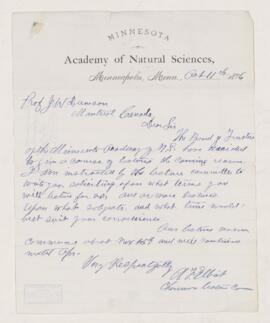 MINNESOTA
Academy of Natural Sciences,
Minneapolis, Minn. Oct 11th 1876
Prof J W Dawson
Montreal Canada
Dear Sir
The Board of Trustees
of the Minnesota Academy of N.S. have decided
to give a course of lectures the coming season.
I am instructed by the lecture committee to
write you asking upon what terms you
will lecture for us one or more lectures
upon what subjects, and what time would
best suit your convenience.
Our lectures
commence about Nov 15th and will continue
until
Very Respectfully
Chairman Lecture Com